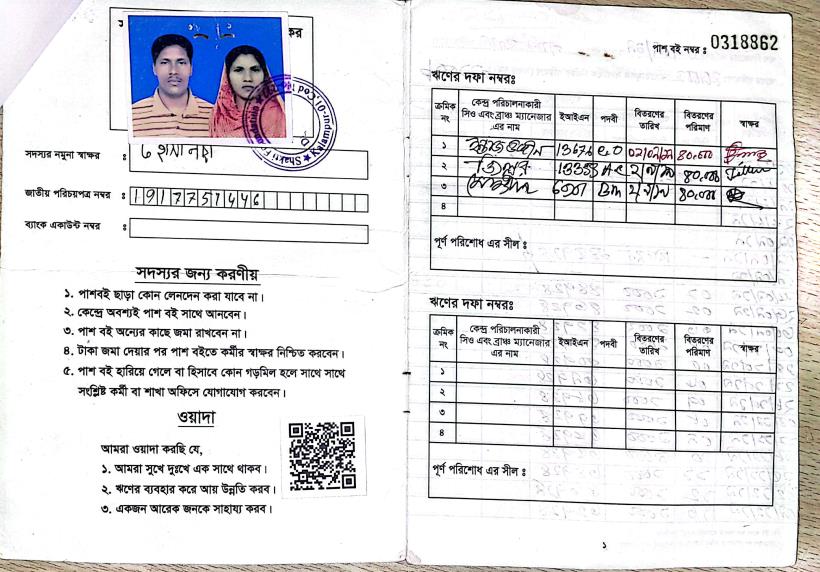 কর
সদস্যর নমুনা স্বাক্ষর :
জাতীয় পরিচয়পত্র নম্বর : 1917751446
ব্যাংক একাউন্ট নম্বর :
সদস্যর জন্য করণীয়
১. পাশবই ছাড়া কোন লেনদেন করা যাবে না।
২. কেন্দ্রে অবশ্যই পাশ বই সাথে আনবেন।
৩. পাশ বই অন্যের কাছে জমা রাখবেন না।
৪. টাকা জমা দেয়ার পর পাশ বইতে কর্মীর স্বাক্ষর নিশ্চিত করবেন।
৫. পাশ বই হারিয়ে গেলে বা হিসাবে কোন গড়মিল হলে সাথে সাথে
সংশ্লিষ্ট কর্মী বা শাখা অফিসে যোগাযোগ করবেন।
ওয়াদা
আমরা ওয়াদা করছি যে,
১. আমরা সুখে দুঃখে এক সাথে থাকব।
২. ঋণের ব্যবহার করে আয় উন্নতি করব।
৩. একজন আরেক জনকে সাহায্য করব।
পাশ বই নম্বর : 0318862
ঋণের দফা নম্বরঃ
ক্রমিক নং কেন্দ্র পরিচালনাকারী সিও এবং ব্রাঞ্চ ম্যানেজার এর নাম ইআইএন পদবী বিতরণের তারিখ বিতরণের পরিমাণ স্বাক্ষর
১ ৪০,০০০
২ ৪০,০০০
৩ BM ৪০,০০০
৪
পূর্ণ পরিশোধ এর সীল :
ঋণের দফা নম্বরঃ
ক্রমিক নং কেন্দ্র পরিচালনাকারী সিও এবং ব্রাঞ্চ ম্যানেজার এর নাম ইআইএন পদবী বিতরণের তারিখ বিতরণের পরিমাণ স্বাক্ষর
১
২
৩
৪
পূর্ণ পরিশোধ এর সীল :
১